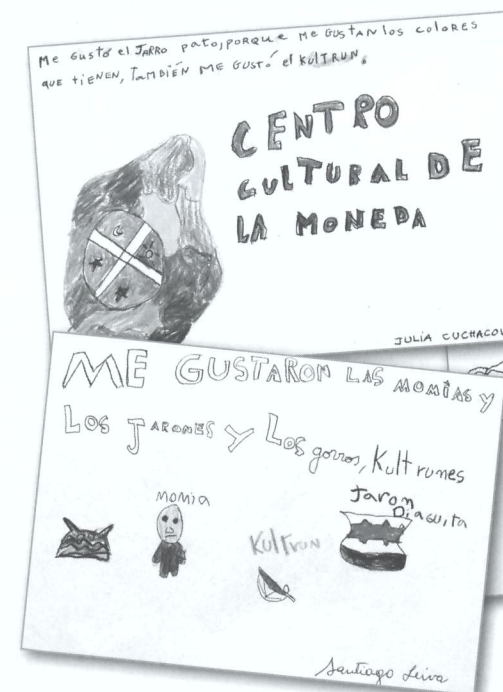 Me gustó el JARRO pato, porque me gustan los colores
que tienen, también me gustó el KULTRUN.
CENTRO
CULTURAL DE
LA MONEDA
JULIA CUCHACOV
ME GUSTARON LAS MOMIAS Y
LOS JARONES Y LOS gorros, Kultrunes
MOMIA
Jaron
DiaGUita
KULTRUN
Santiago Leiva